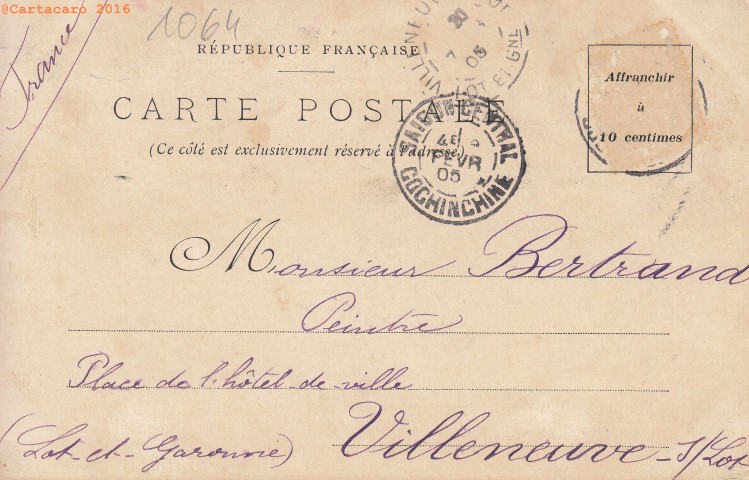 @Cartacaro 2016
1064
France
RÉPUBLIQUE FRANÇAISE
CARTE POSTALE
(Ce côté est exclusivement réservé à l'adresse)
Affranchir
à
10 centimes
VILLENEUV
20
05
LOT ET GNE
SAIGON CENTRAL
4E
FEVR
05
COCHINCHINE
Monsieur Bertrand
Peintre
Place de l'hôtel-de-ville
Villeneuve-s/Lot
(Lot-et-Garonne)